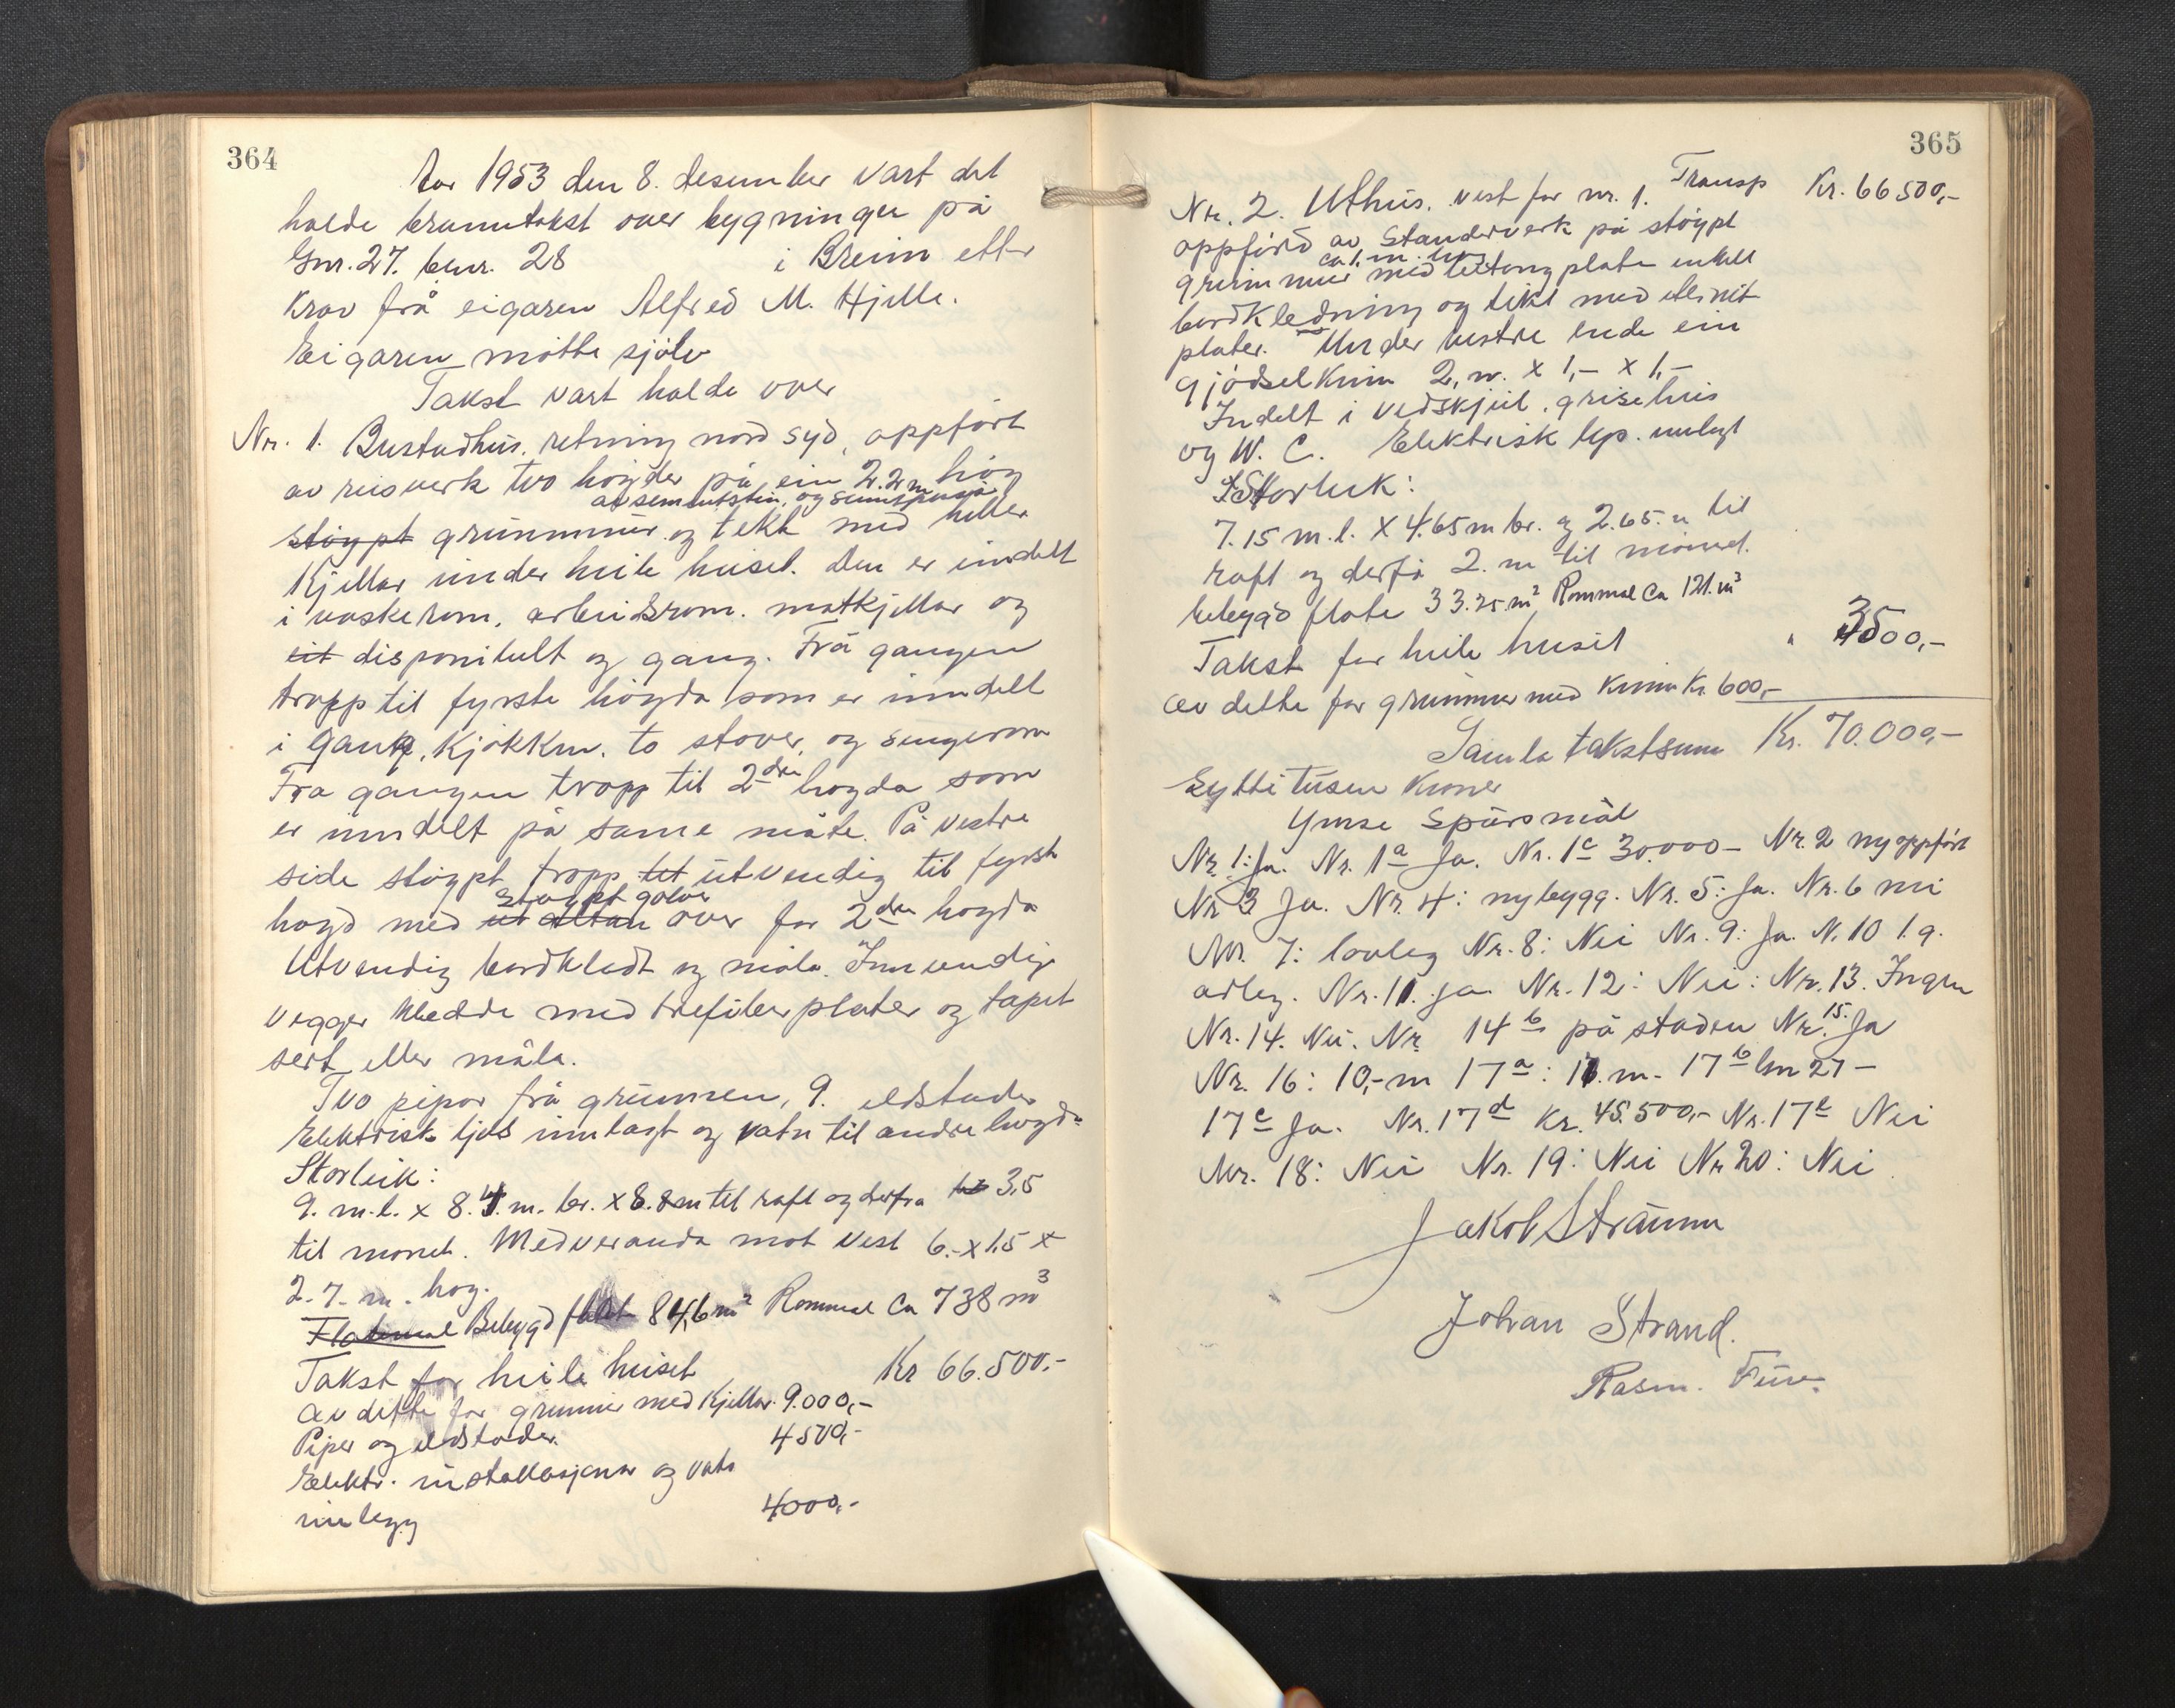 364
Aar 1953 den 8. desember vart det
halde branntakst over bygningar på
Gnr. 27. bnr. 28 i Breim etter
krav frå eigaren Alfred M. Hjelle.
Eigaren møtte sjølv
Takst vart halde over
Nr. 1. Bustadhus. retning nord syd, oppført
av reisverk two høgder på ein 2.2 m høg
av sementstein, og sementpussa
støypt grunnmur og tekt med heller
Kjellar under heile huset. Den er inndelt
i vaskerom, arbeidsrom. matkjellar og
eit disponibelt og gang. Frå gangen
tropp til fyrste høgda som er inndelt
i gang, kjøkken, to stover, og sengerom
Fra gangen tropp til 2dre høgda som
er inndelt på same måte. På vestre
side støypt tropp tet utvendig til fyrste
støypt golv
høgd med ut altan over for 2dre høgda
Utvendig bordkledt og måla. Innvendige
vegger kledde med trefiberplater og tapet
sert eller måla.
Tvo pipor frå grunnen, 9. eldstader
Elektrisk ljos innlagt og vatn til andre høgda
Storleik:
9. m. l. x 8.4. m. br. x 8.8m til raft og derfra til 3,5
til mønet. Medveranda mot vest 6.- x 1.5 x
2.7. m. høg.
Flatemal Bebygd flate 84,6 m² Rommal ca 738 m³
Takst for heile huset Kr 66.500.-
av dette for grunnmur med kjellar 9.000,-
Piper og eldstader. 4500,-
Elektr. installasjonar og vatn
innlegg 4000,-
365
Transp Kr. 66 500,-
Nr. 2. Uthus. vest for nr. 1.
oppførd av Standerverk på støypt
ca 1. m. høg
grunnmur med plate enkelt
bordkledning og tekt med eternit
plater. Under vestre ende ein
gjødselkum 2, m. x 1,- x 1,-
Indelt i vedskjul, grisehus
og W. C. Elektrisk lys. innlagt
Storleik:
7.15 m. l. x 4.65 m br. og 2.65. m til
raft og derfå 2. m til mønet.
bebygd flate 33.25 m² Rommal ca 121. m³
Takst for heile huset " 3500,-
av dette for grunnmur med kum Kr. 600,-
Samla takstsum Kr. 70.000,-
Sytti tusen kroner
Ymse Spørsmål
Nr. 1: Ja. Nr. 1a Ja. Nr. 1c 30.000- Nr. 2 nyoppført
Nr 3 Ja. Nr. 4: nybygg. Nr. 5: Ja. Nr. 6 nei
Nr. 7: lovleg Nr. 8: Nei Nr. 9: Ja. N. 10 1. g.
arleg. Nr. 11. Ja. Nr. 12: Nei: Nr. 13. Ingen
Nr. 14. Nei. Nr 14b på staden Nr. 15. Ja
Nr. 16: 10,- m 17a: 11. m. 17b Gnr 27 -
17c Ja. Nr. 17d Kr. 45.500,- Nr. 17e Nei
Nr. 18: Nei Nr. 19: Nei Nr 20: Nei
Jakob Straume
Johan Strand.
Rasm. Fure.